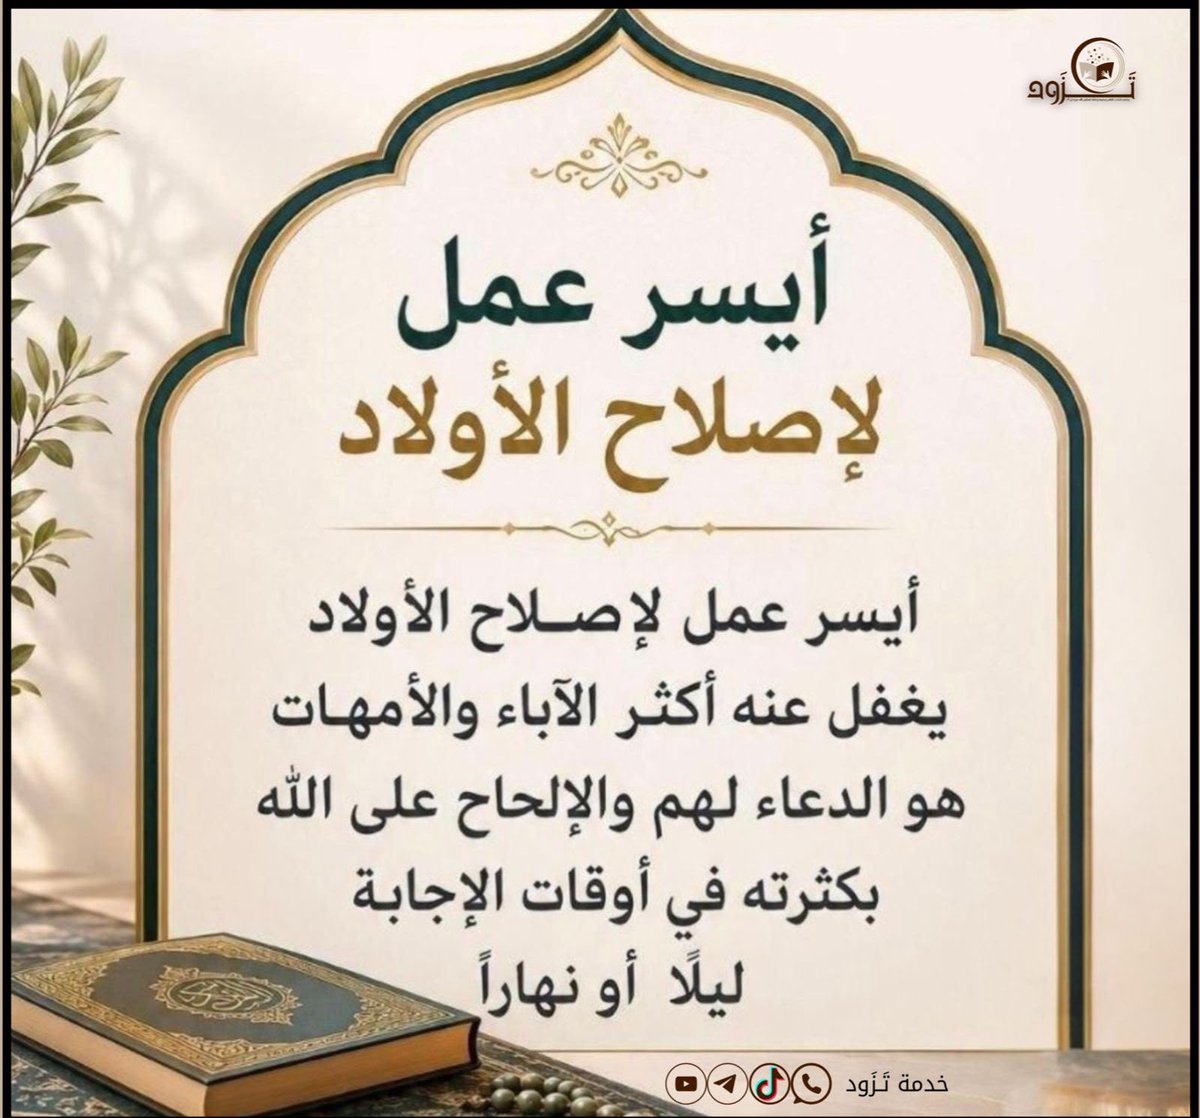 تَـزَود
أيسر عمل
لإصلاح الأولاد
أيسر عمل لإصـلاح الأولاد
يغفل عنه أكثـر الآباء والأمهـات
هو الدعاء لهم والإلحاح على الله
بكثرته في أوقات الإجابة
ليلًا أو نهاراً
خدمة تَـزَود